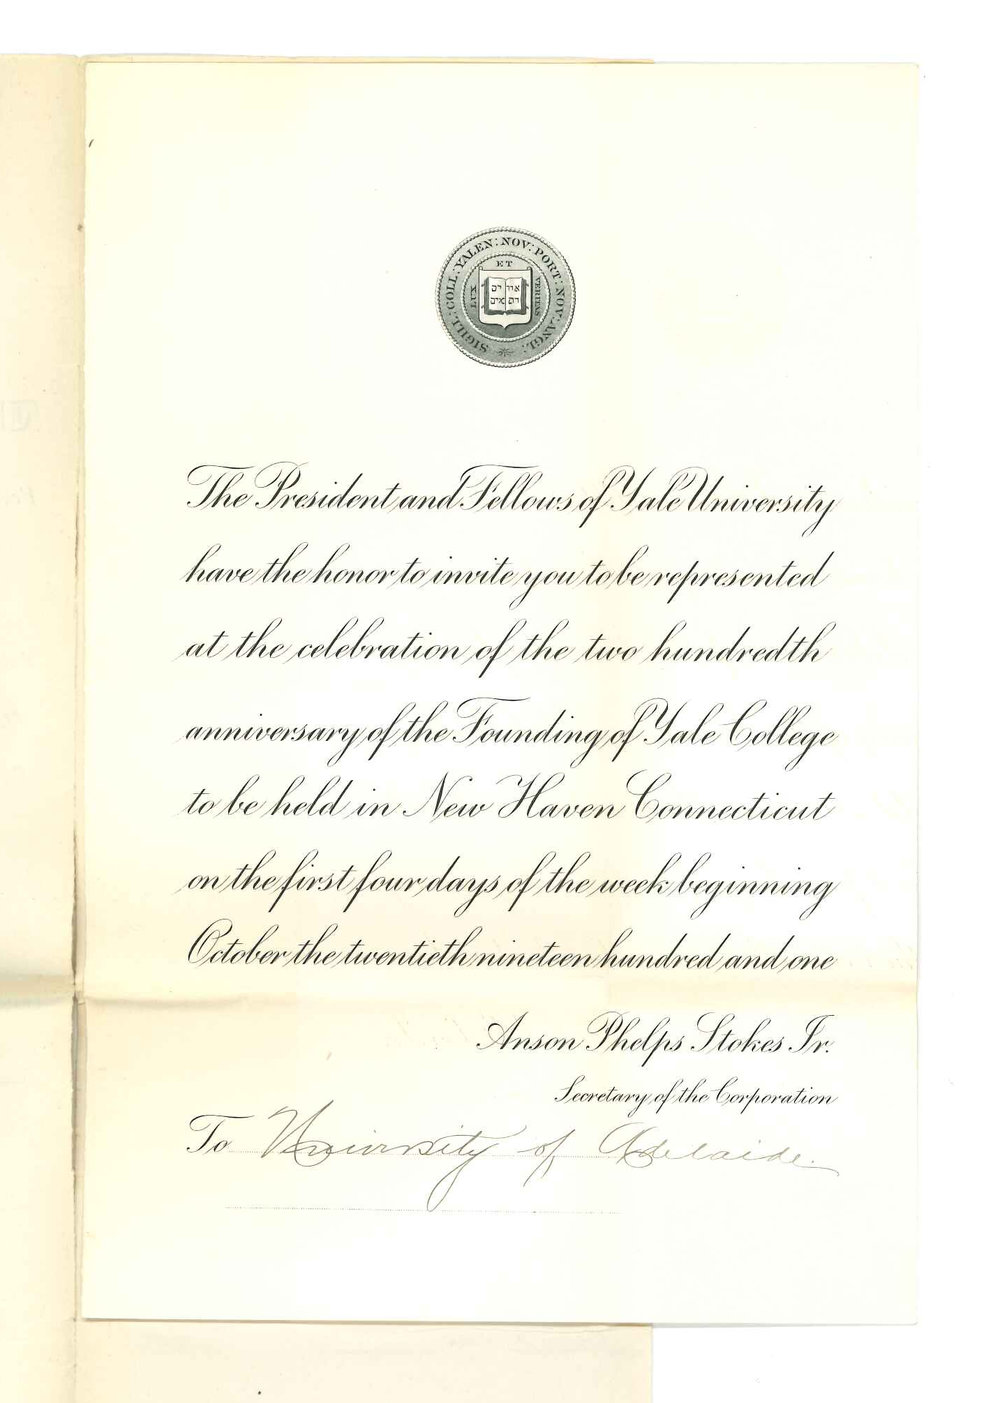 SIGILL: COLL: YALEN: NOV: PORT: NOV: ANGL:
LUX ET VERITAS
The President and Fellows of Yale University
have the honor to invite you to be represented
at the celebration of the two hundredth
anniversary of the Founding of Yale College
to be held in New Haven Connecticut
on the first four days of the week beginning
October the twentieth nineteen hundred and one
Anson Phelps Stokes Jr.
Secretary of the Corporation
To University of Adelaide.